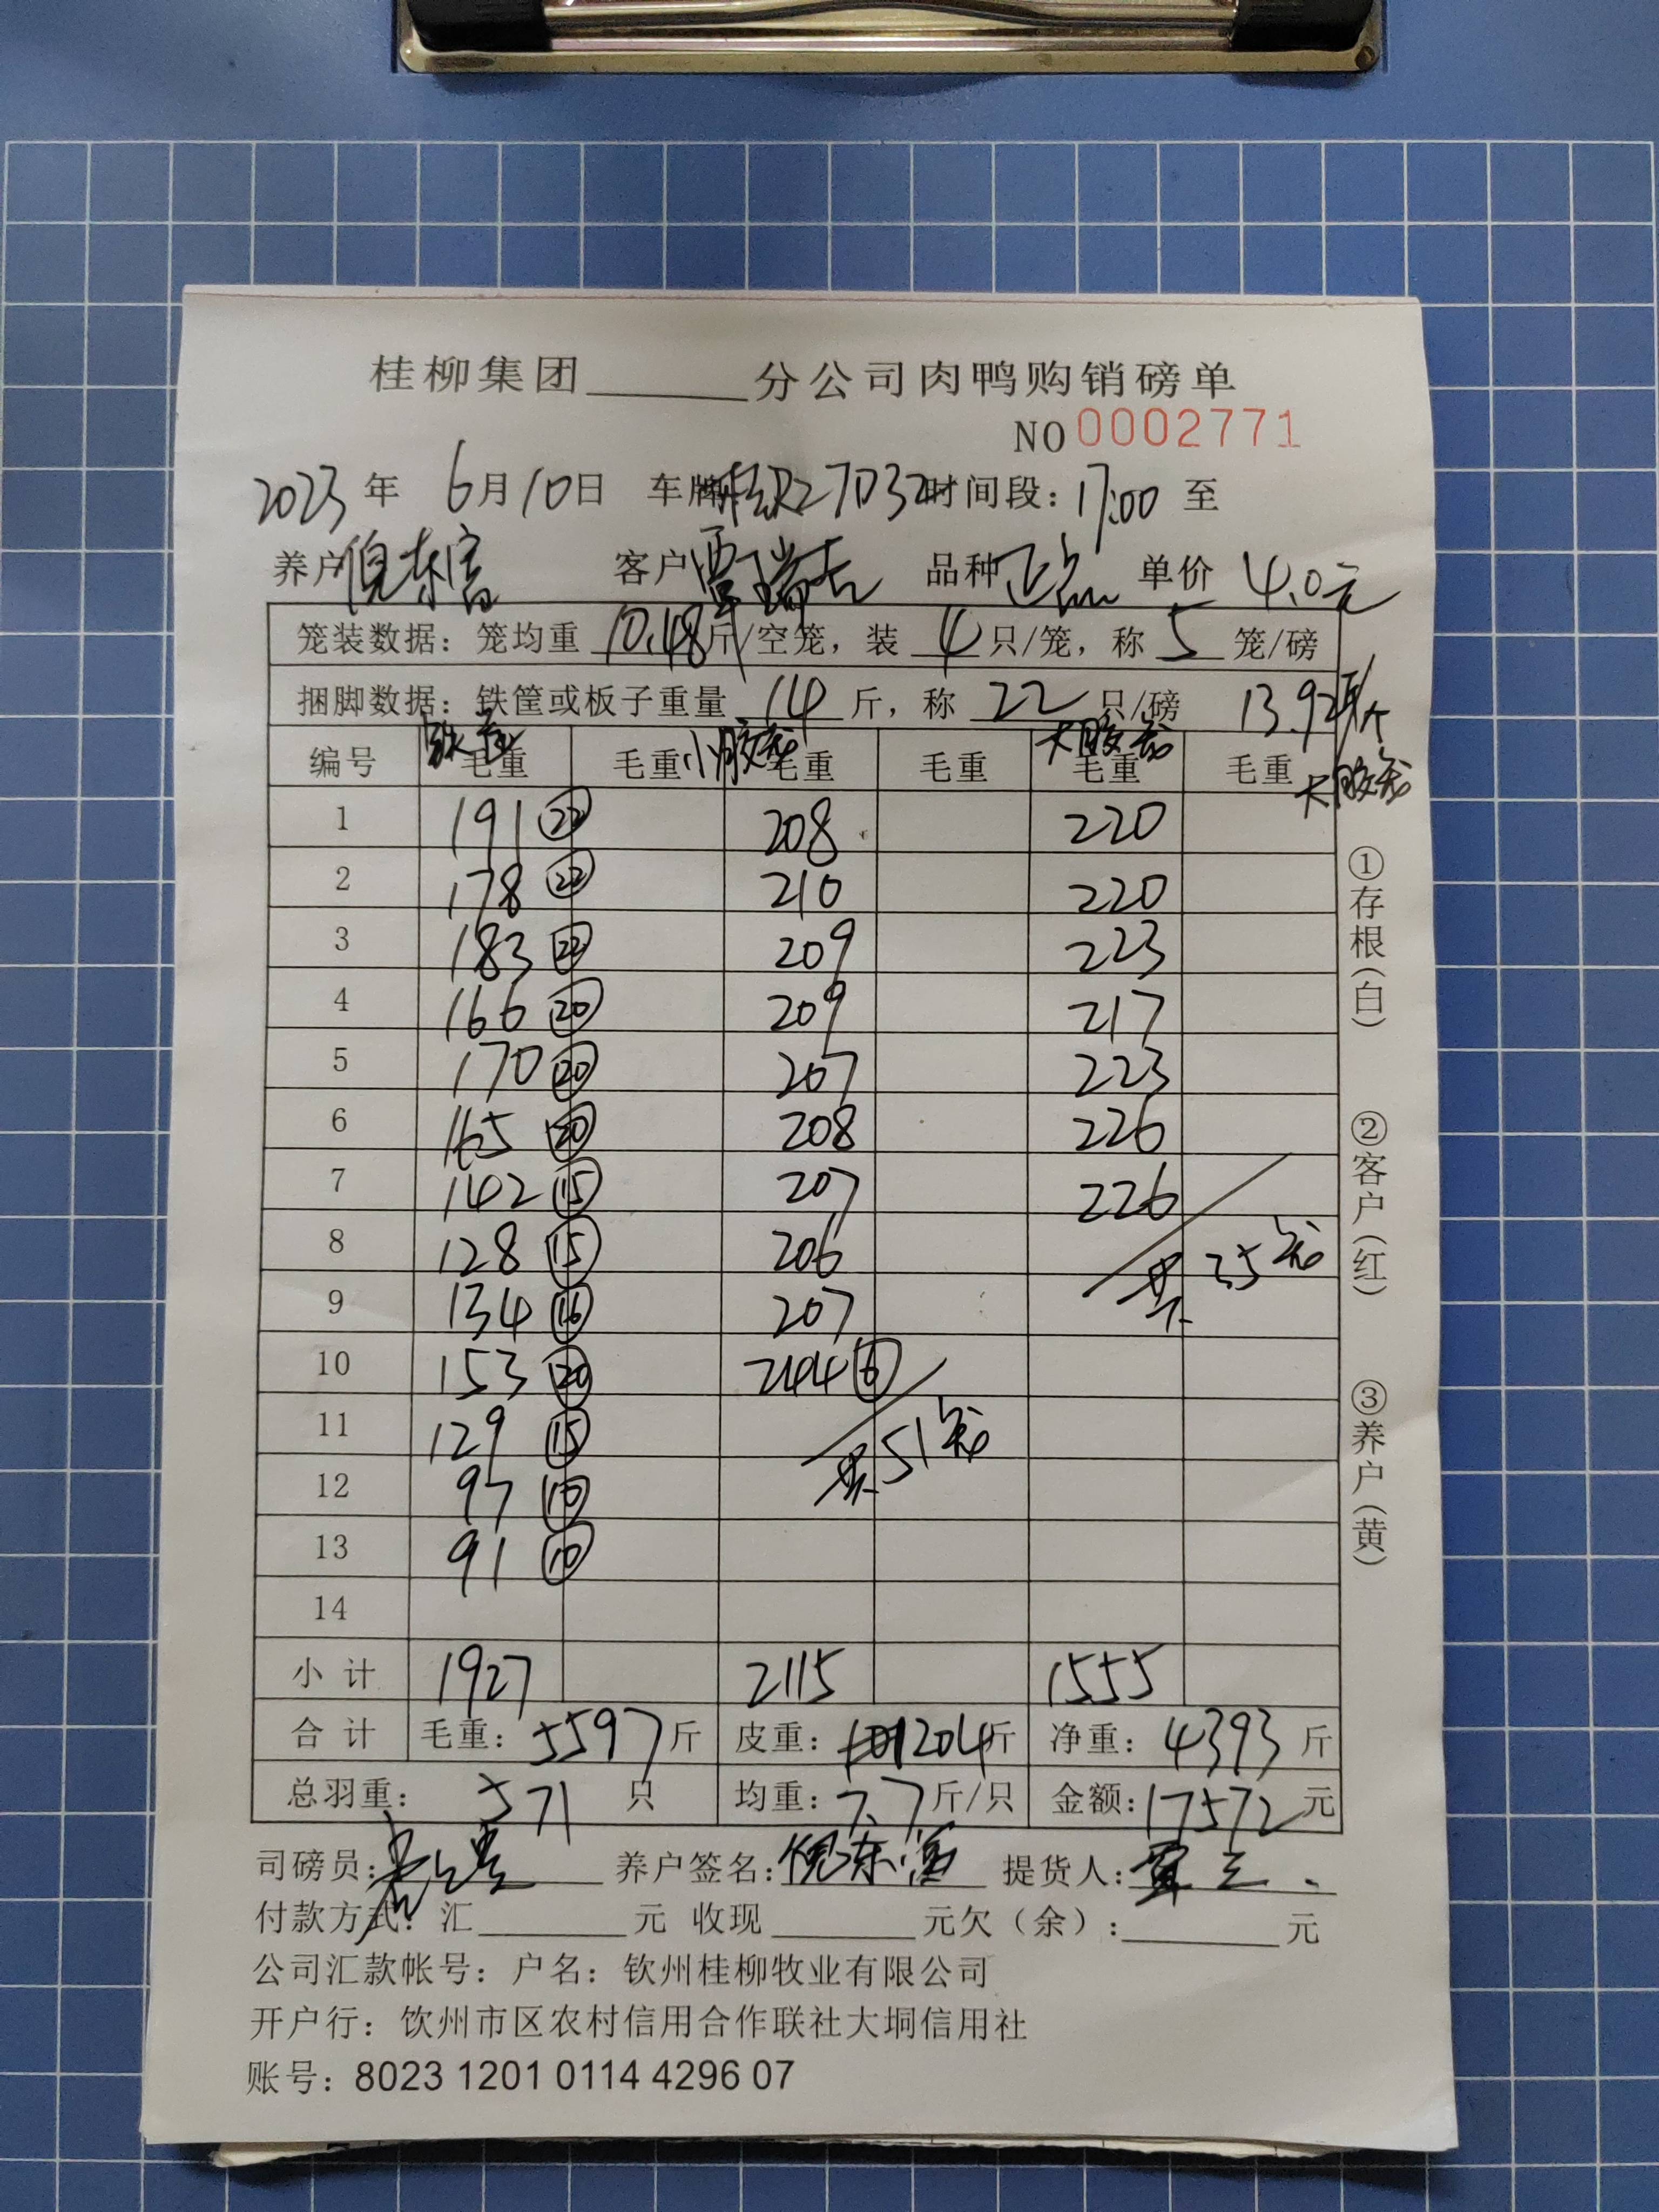 桂柳集团______分公司肉鸭购销磅单
NO 0002771
2023年 6月10日 车牌 27032 时间段：17:00 至
养户 倪东富 客户 覃瑞吉 品种 正品 单价 4.0元
笼装数据：笼均重 10.48 斤/空笼，装 4 只/笼，称 5 笼/磅
捆脚数据：铁筐或板子重量 14 斤，称 22 只/磅 13.92斤/个
大胶笼
编号 铁笼 毛重 毛重 小胶笼 毛重 毛重 大胶笼 毛重 毛重
1 191 ㉒ 208 220
2 178 ㉒ 210 220
3 183 ㉒ 209 223
4 166 ⑳ 209 217
5 170 ⑳ 207 223
6 165 ⑳ 208 226
7 142 ⑮ 207 226
8 128 ⑮ 206 共35笼
9 134 ⑯ 207
10 153 ⑳ 244 ⑥
11 129 ⑮ 共51笼
12 97 ⑩
13 91 ⑩
14
小计 1927 2115 1555
合计 毛重：5597斤 皮重：1204斤 净重：4393斤
总羽重：571 只 均重：7.7斤/只 金额：17572元
司磅员： 养户签名：倪东富 提货人：
付款方式：汇______元 收现______元欠（余）：______元
公司汇款帐号：户名：钦州桂柳牧业有限公司
开户行：钦州市区农村信用合作联社大垌信用社
账号：8023 1201 0114 4296 07
①存根（白） ②客户（红） ③养户（黄）